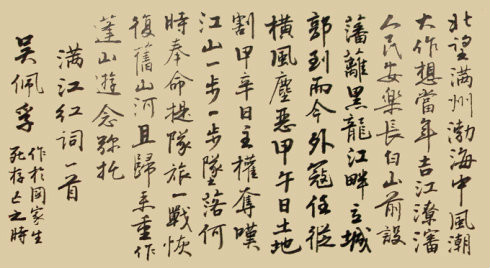 北望满州渤海中風潮
大作想當年吉江遼瀋
人民安樂長白山前設
藩籬黑龍江畔立城
郭到而今外寇任從
橫風塵惡甲午日土地
割甲辛日主權奪嘆
江山一步一步墜落何
時奉命提隊旅一戰恢
復舊山河且歸来重作
蓬山遊念弥陀
满江红词一首
吴佩孚
作於国家生
死存亡之時